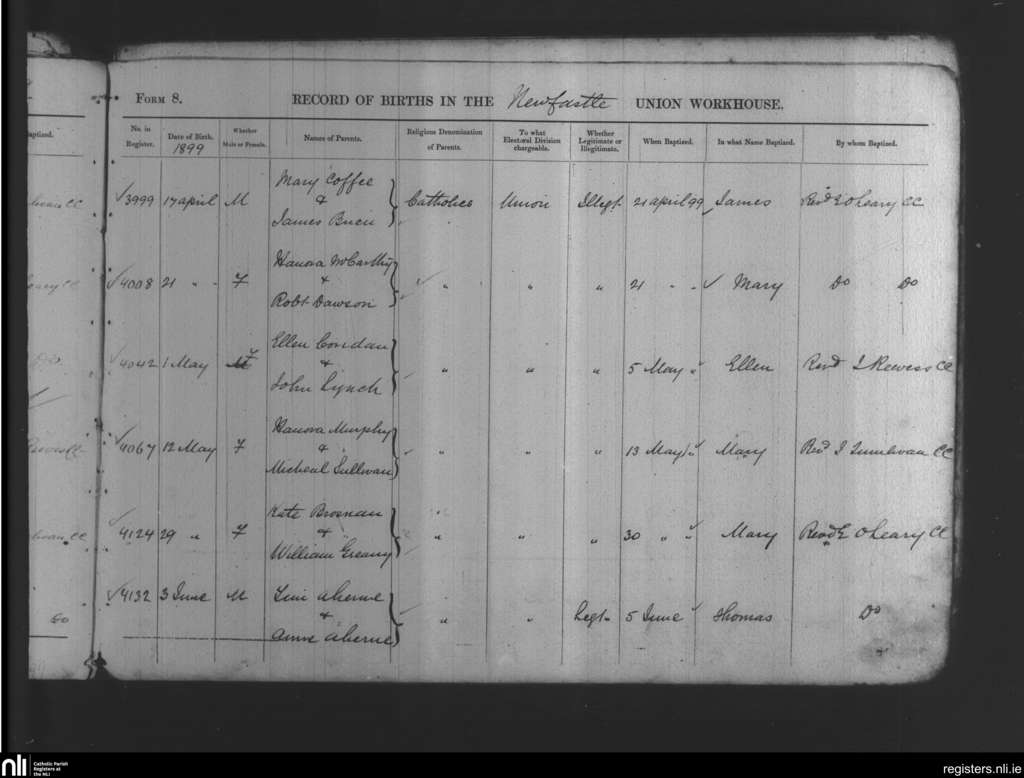 Form 8. RECORD OF BIRTHS IN THE Newcastle UNION WORKHOUSE.
No. in Register. Date of Birth. 1899 Whether Male or Female. Names of Parents. Religious Denomination of Parents. To what Electoral Division chargeable. Whether Legitimate or Illegitimate. When Baptized. In what Name Baptized. By whom Baptized.
aptized.
Mary Coffee
3999 17 april M & Catholics Union Illegt. 21 april 99 James Revd E O'Leary CC
James
Hanora McCarthy
4008 21 " " F & " " " 21 " " Mary Do Do
Robt Dawson
Ellen Condan
4042 1 May F & " " " 5 May " Ellen Revd I CC
John Lynch
Hanora Murphy
4067 12 May F & " " " 13 May " Mary Revd J CC
Micheal Sullivan
Kate Brosnan
4124 29 " F & " " " 30 " " Mary Revd E O'Leary CC
William Greany
4132 3 June M aherne & " " Legt. 5 June Thomas Do
Anne aherne
nli Catholic Parish Registers at the NLI
registers.nli.ie